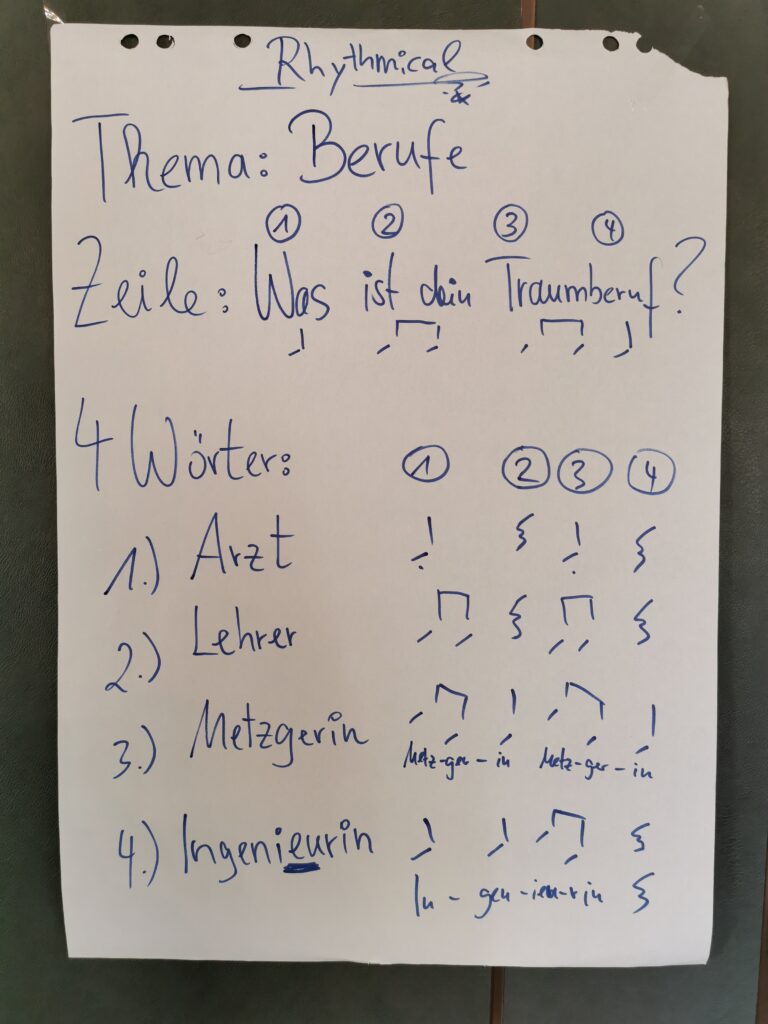 Rhythmical
Thema: Berufe
① ② ③ ④
Zeile: Was ist dein Traumberuf?
4 Wörter: ① ② ③ ④
1.) Arzt
2.) Lehrer
3.) Metzgerin
Metz-ger-in Metz-ger-in
4.) Ingenieurin
In-gen-ieu-rin